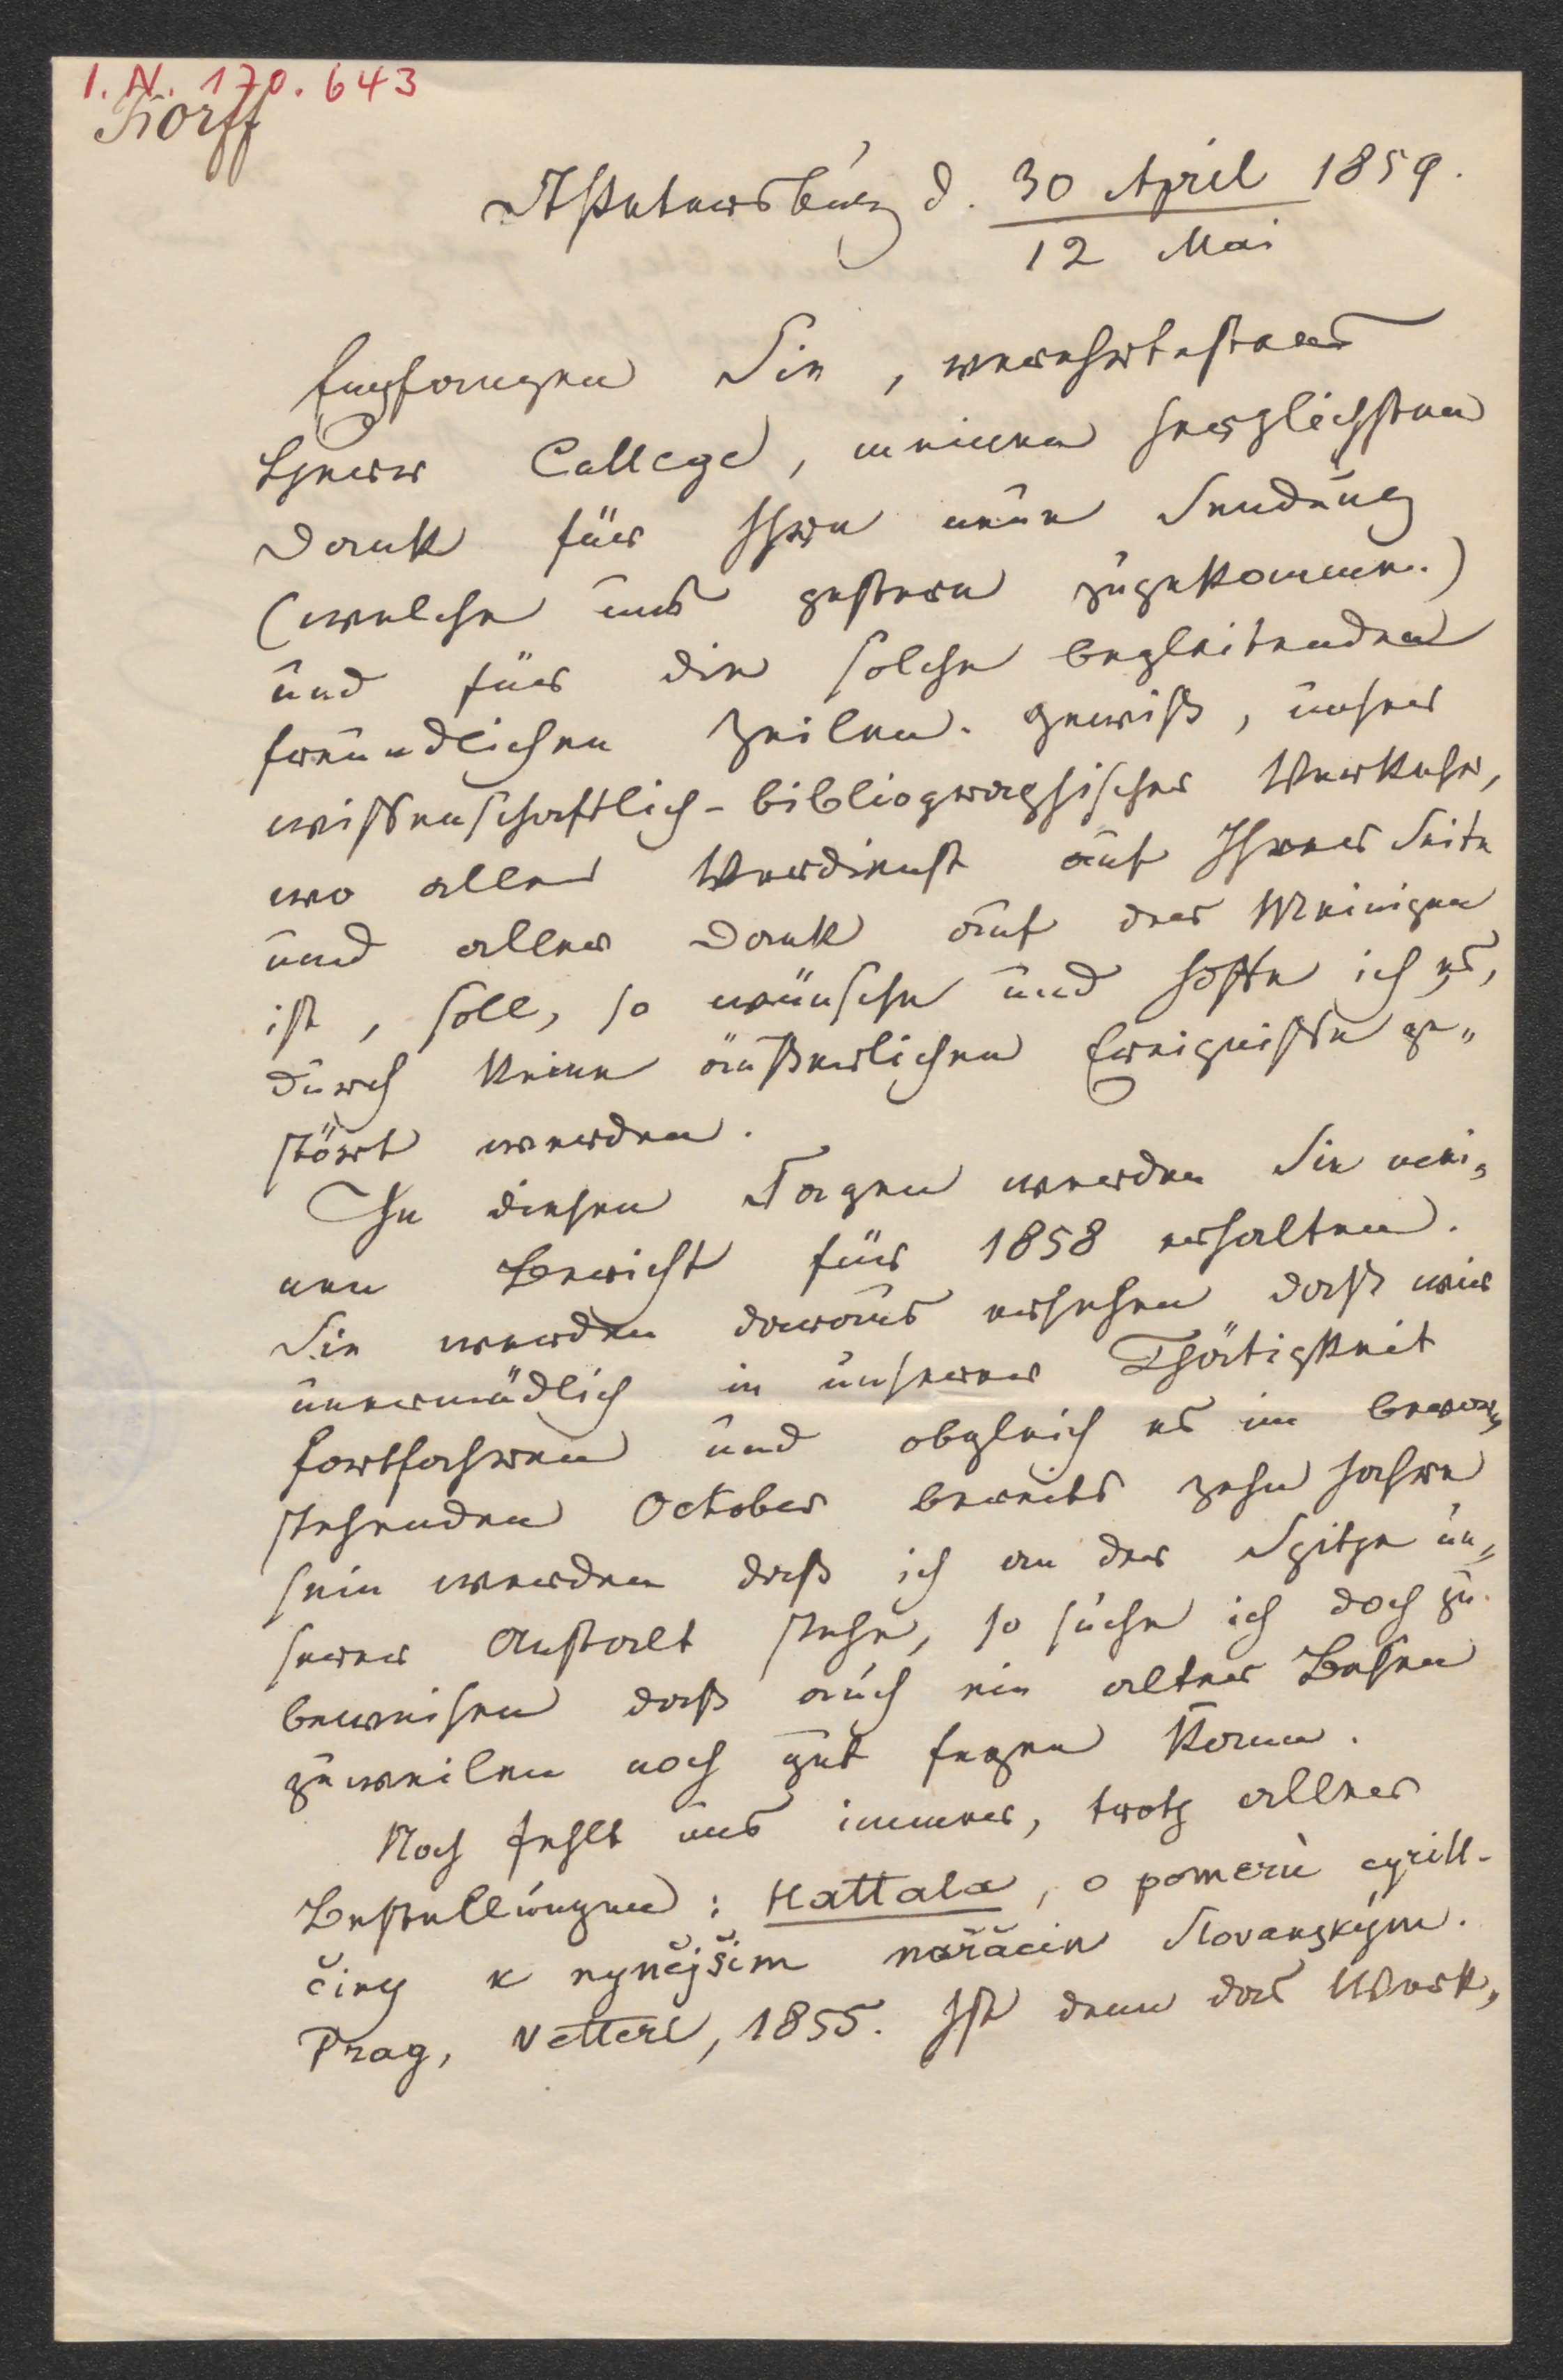 I. N. 170.643
Korff
St Petersburg d. 30 April 1859.
12 Mai
Empfangen Sie, verehrtester
Herr College, meinen herzlichsten
Dank für Ihre neue Sendung
(welche uns gestern zugekommen.)
und für die solche begleitenden
freundlichen Zeilen. Gewiß, unser
wissenschaftlich-bibliographischer Verkehr,
wo aller Verdienst auf Ihrer Seite
und aller Dank auf der Meinigen
ist, soll, so wünsche und hoffe ich es,
durch keine äußerlichen Ereignisse ge„
stört werden.
In diesen Tagen werden Sie mei„
nen Bericht für 1858 erhalten.
Sie werden daraus ersehen daß wir
unermüdlich in unserer Thätigkeit
fortfahren und obgleich es im bevor„
stehenden October bereits zehn Jahre
sein werden daß ich an der Spitze un„
serer Anstalt stehe, so suche ich doch zu
beweisen daß auch ein alter Besen
zuweilen noch gut fegen kann.
Noch fehlt uns immer, trotz aller
Bestellungen: Hattala, o poměru cyrill-
činy k nynějšim nařăcim Slovanskym.
Prag, Vetterl, 1855. Ist denn das Werk,